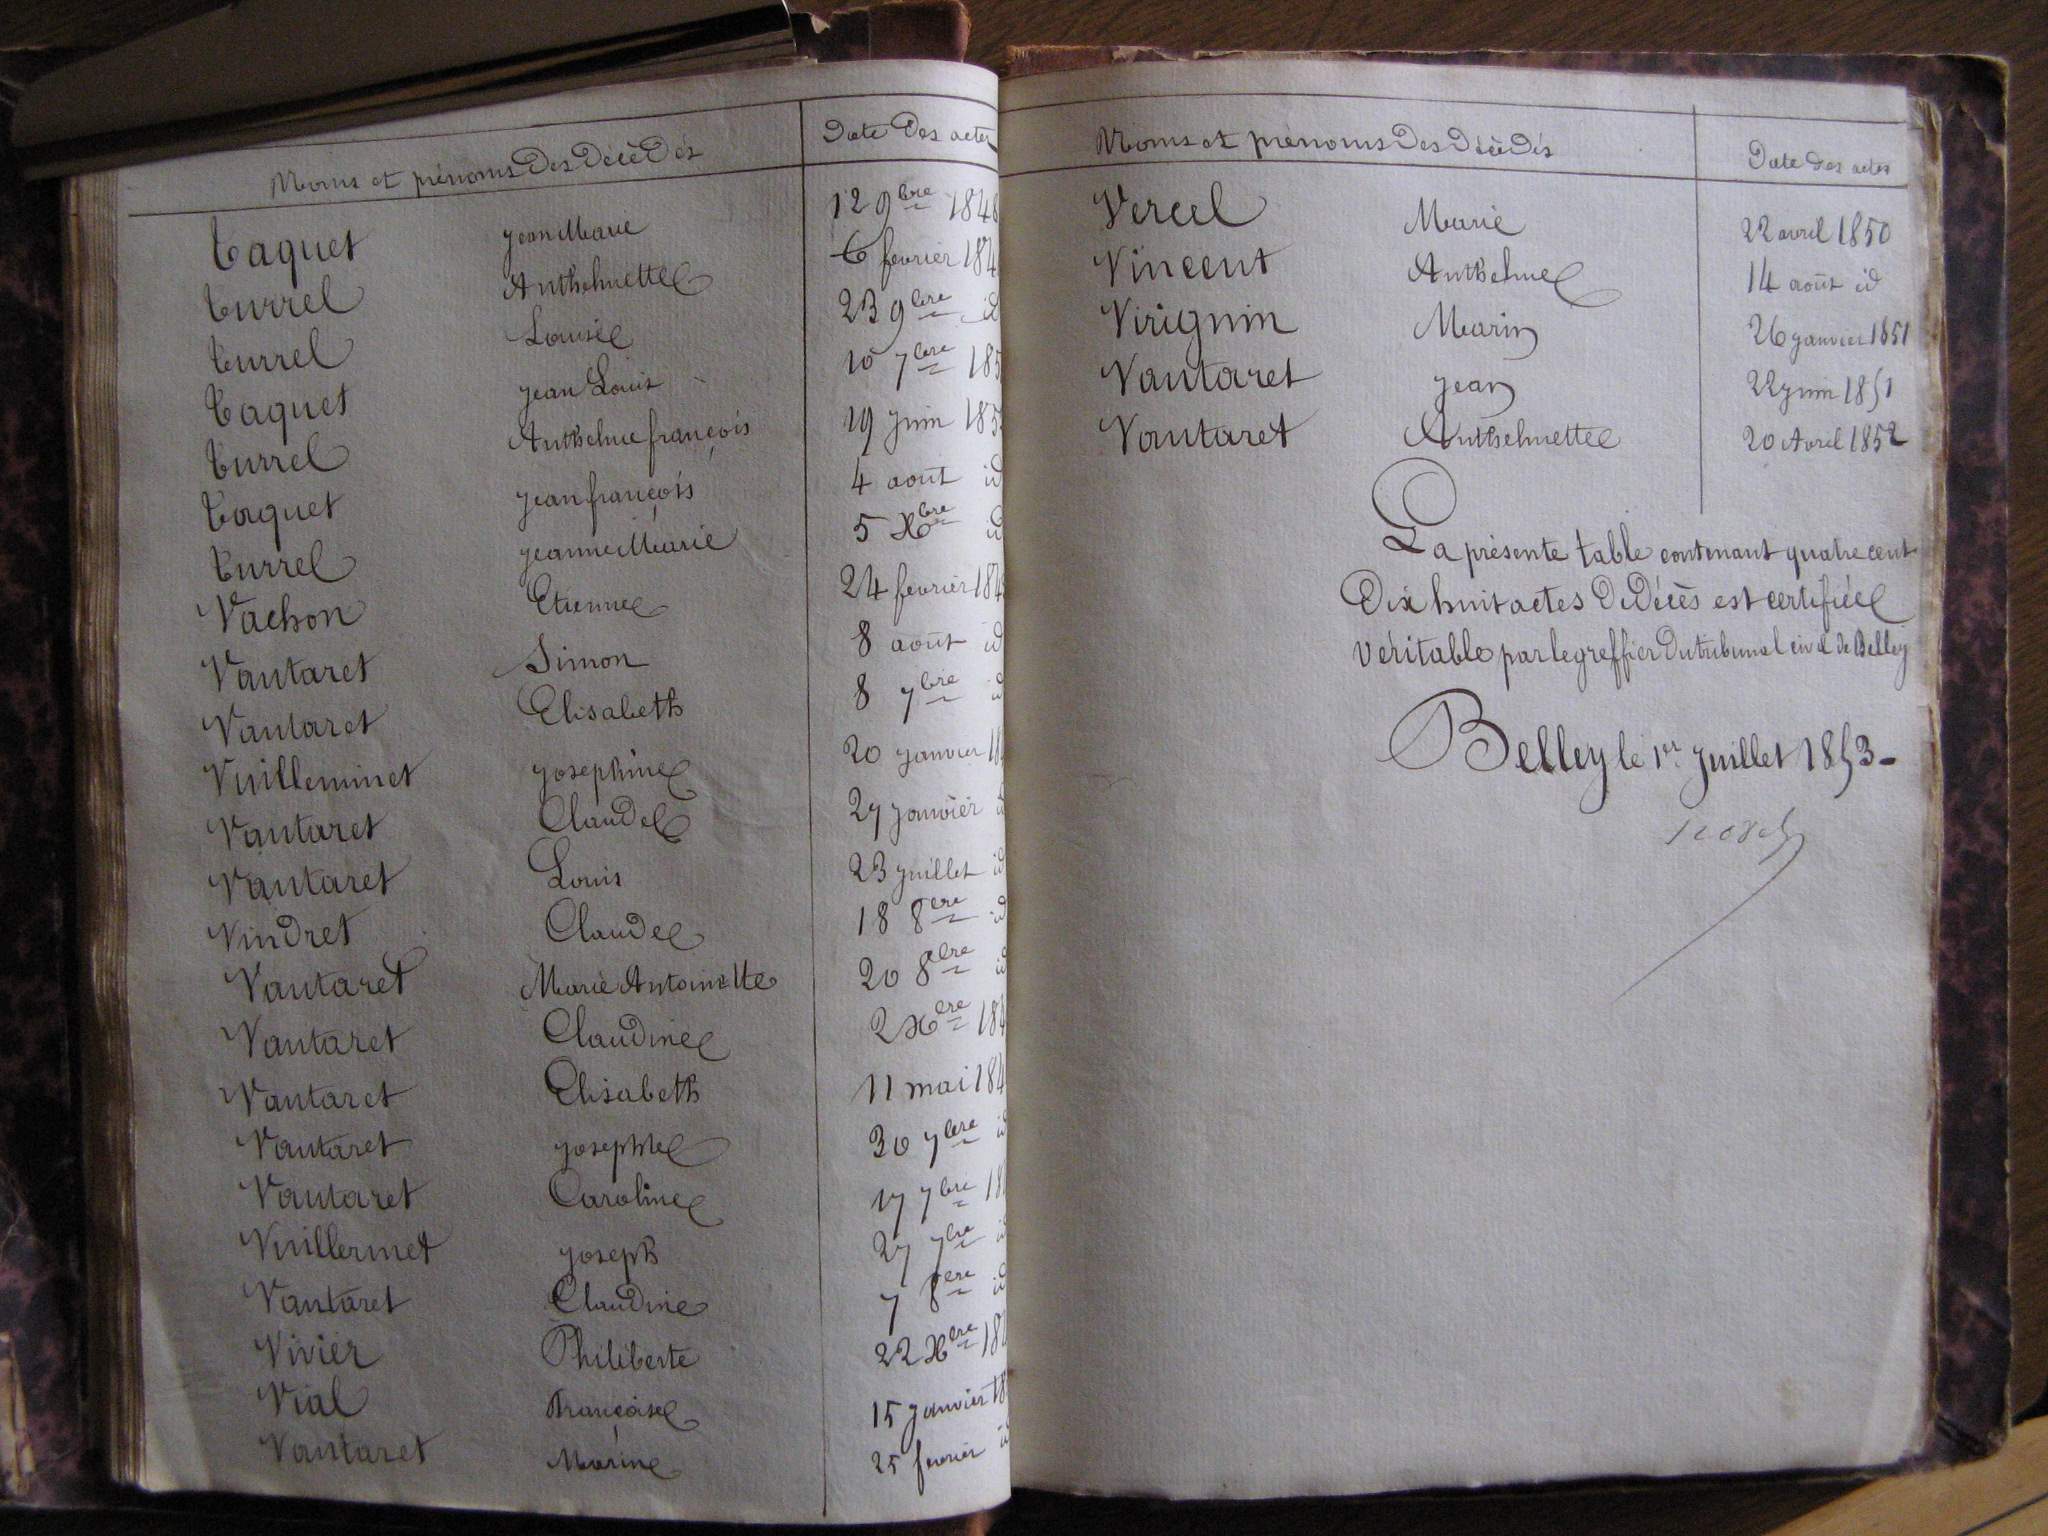 Noms et prénoms des décédés Date des actes
Taquet jean Marie 12 9bre 184
Turrel Anthelmette 6 fevrier 184
Turrel Louise 23 9bre id
Taquet jean Louis 10 7bre 185
Turrel Anthelme françois 19 juin 185
Taquet jean françois 4 août id
Turrel jeanne Marie 5 Xbre id
Vachon Etienne 24 fevrier 184
Vautaret Simon 8 août id
Vautaret Elisabeth 8 7bre id
Vuilleminet josephine 20 janvier 18
Vautaret Claude 27 janvier
Vautaret Louis 23 juillet id
Vindret Claude 18 8bre id
Vautaret Marie Antoinette 20 8bre id
Vautaret Claudine 2 Xbre 184
Vautaret Elisabeth 11 mai 184
Vautaret josephte 30 7bre id
Vautaret Caroline 17 7bre 18
Vuillermet joseph 27 7bre id
Vautaret Claudine 7 8bre id
Vivier Philiberte 22 Xbre 18
Vial Françoise 15 janvier 18
Vautaret Marine 25 fevrier id
Noms et prénoms des décédés Date des actes
Vercel Marie 22 avril 1850
Vincent Anthelme 14 août id
Virignin Marin 26 janvier 1851
Vautaret jean 22 juin 1851
Vautaret Anthelmette 20 Avril 1852
La présente table contenant quatre cent
Dix huit actes de Décès est certifiée
véritable par le greffier du tribunal civil de Belley
Belley le 1er juillet 1853 -